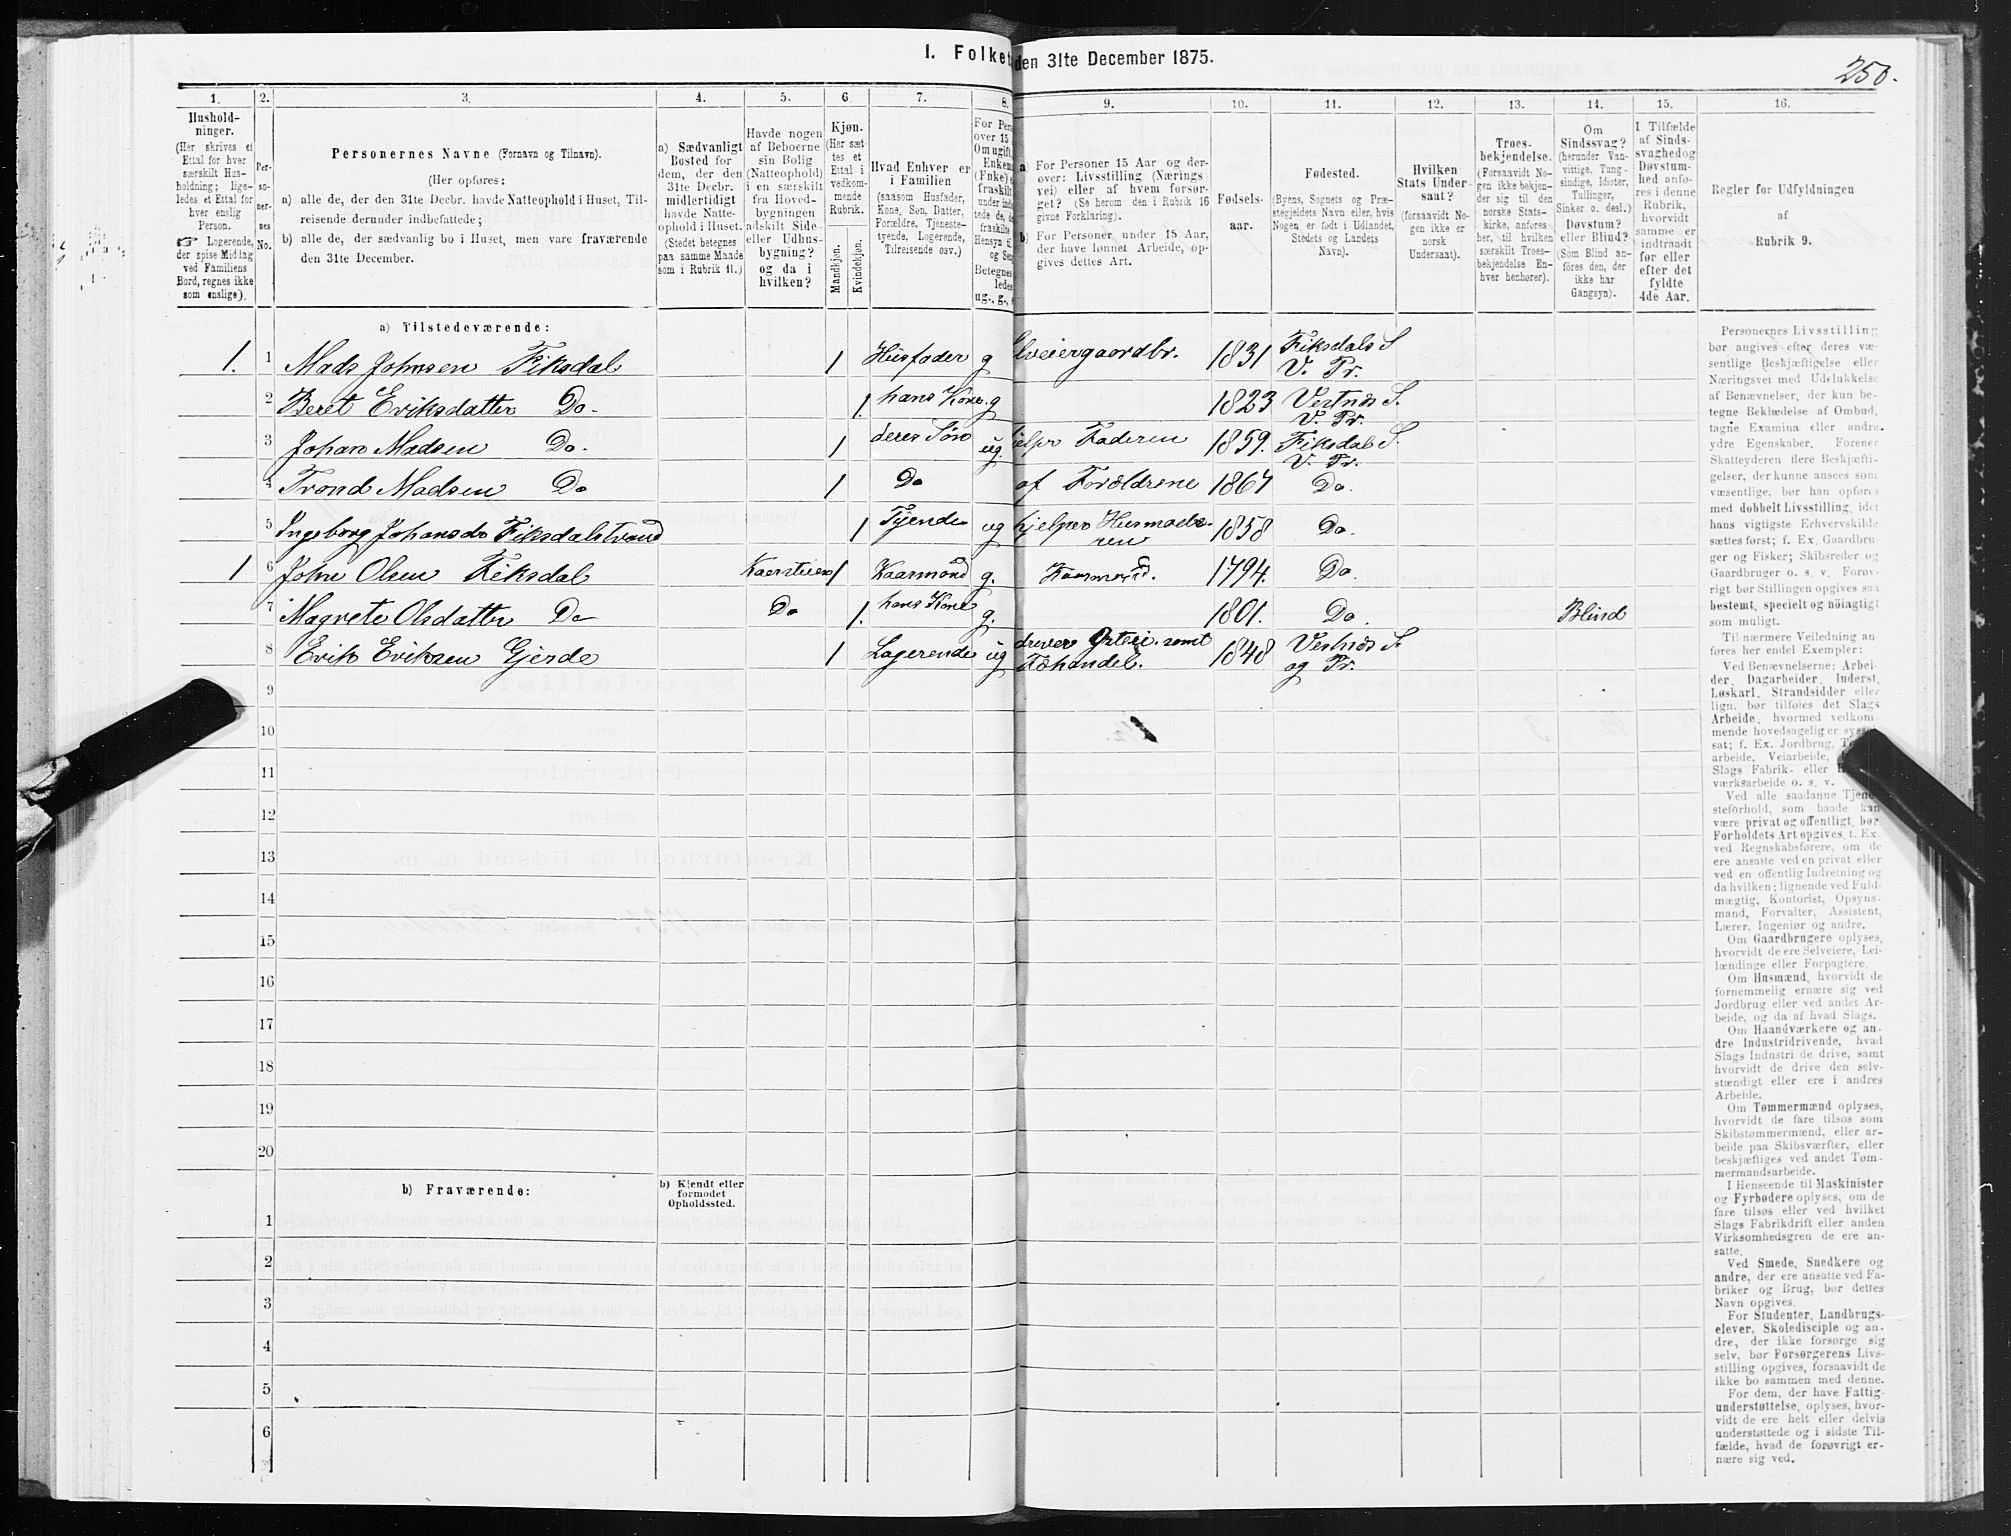 I. Folket den 31te December 1875.
250.
1. 2. 3. 4. 5. 6. 7. 8. 9. 10. 11. 12. 13. 14. 15. 16.
Hushold-
ninger.
(Her skrives et
Ettal for hver
særskilt Hus-
holdning; lige-
ledes et Ettal for
hver enslig
Person.
☞ Logerende,
der spise Middag
ved Familiens
Bord, regnes ikke
som enslige).
Per-
so-
ner-
nes
No.
Personernes Navne (Fornavn og Tilnavn).
(Her opføres:
a) alle de, der den 31te Decbr. havde Natteophold i Huset, Til-
reisende derunder indbefattede;
b) alle de, der sædvanlig bo i Huset, men vare fraværende
den 31te December.
a) Sædvanligt
Bosted for
dem, der den
31te Decbr.
midlertidigt
havde Natte-
ophold i Huset.
(Stedet betegnes
paa samme Maade
som i Rubrik 11.)
Havde nogen
af Beboerne
sin Bolig
(Natteophold)
i en særskilt
fra Hoved-
bygningen
adskilt Side-
eller Udhus-
bygning?
og da i
hvilken?
Kjøn.
(Her sæt-
tes et
Ettal i
vedkom-
mende
Rubrik.
Mandkjøn.
Kvindekjøn.
Hvad Enhver er
i Familien
(saasom Husfader,
Kone, Søn, Datter,
Forældre, Tjeneste-
tyende, Logerende,
Tilreisende osv.)
For Pers
over 15
Om ugift,
Enkem
(Enke) e
fraskilt
under ind
tede de, d
fraskilte
Hensyn ti
og Sen
Betegnes
ledes
ug., g., e
a) For Personer 15 Aar og der-
over: Livsstilling (Nærings
vei) eller af hvem forsør-
get? (Se herom den i Rubrik 16
givne Forklaring).
b) For Personer under 15 Aar,
der have lønnet Arbeide, op-
gives dettes Art.
Fødsels-
aar.
Fødested.
(Byens, Sognets og Præ-
stegjeldets Navn eller, hvis
Nogen er født i Udlandet,
Stedets og Landets
Navn).
Hvilken
Stats Under-
saat?
(forsaavidt No-
gen ikke er
norsk
Undersaat).
Troes-
bekjendelse.
(Forsaavidt No-
gen ikke bekjen-
der sig til den
norske Stats-
kirke, anføres
her, til hvilken
særskilt Troes-
bekjendelse En-
hver henhører).
Om
Sindssvag?
(herunder Van-
vittige, Tung-
sindige, Idioter,
Tullinger,
Sinker o. desl.)
Døvstum?
eller Blind?
(Som Blind an-
føres den, der
ikke har
Gangsyn).
I Tilfælde
af Sinds-
svaghedog
Døvstum-
hed anfø-
res i denne
Rubrik,
hvorvidt
samme er
indtraadt
før eller
efter det
fyldte
4de Aar.
Regler for Udfyldningen
af
Rubrik 9.
a) Tilstedeværende:
1. 1 Mads Johnsen Fiksdal 1 Husfader g lveiergaardbr. 1831 Fiksdals S
V. Pr.
2 Beret Eriksdatter Do. 1. hans Kone. g 1823 Vestnæs S.
V. Pr.
3 Johan Madsen Do. 1 deres Søn ug. jelpr Faderen 1859. Fiksdals S.
V. Pr.
4 Trond Madsen Do 1 Do af Forældrene 1867 Do.
5 Ingeborg Johansdr Fiksdalstrand 1 Tjende ug hjelper Husmode-
ren 1858 Do.
1 6 John Olsen Fiksdal 1 Kaarmand g. Kaarmand. 1794. Do.
7 Magrete Olsdatter Do Do 1. hans Kone g. 1801. Do. Blind
8 Erik Eriksen Gjerde 1 Logerende ug drever samt
Fæhandel. 1848 Vestnæs S.
og Pr.
9
10
11
12
13
14
15
16
17
18
19
20
b) Fraværende:
b) Kjendt eller
formodet
Opholdssted.
1
2
3
4
5
6
Personernes Livsstilling
bør angives efter deres væ-
sentlige Beskjæftigelse eller
Næringsvei med Udelukkelse
af Benævnelser, der kun be-
tegne Beklædelse af Ombud,
tagne Examina eller andre
ydre Egenskaber. Forener
Skatteyderen flere Beskjæfti-
gelser, der kunne ansees som
væsentlige, bør han opføres
med dobbelt Livsstilling, idet
hans vigtigste Erhvervskilde
sættes først; f. Ex. Gaardbru-
ger og Fisker; Skibsreder og
Gaardbruger o. s. v. Forøv-
rigt bør Stillingen opgives saa
bestemt, specielt og nöiagtigt
som muligt.
Til nærmere Veiledning an-
føres her endel Exempler:
Ved Benævnelserne: Arbei-
der, Dagarbeider, Inderst,
Løskarl, Strandsidder eller
lign. bør tilføies det Slags
Arbeide, hvormed vedkom-
mende hovedsagelig er syssel-
sat; f. Ex. Jordbrug, T
arbeide, Veiarbeide,
Slags Fabrik- eller
værksarbeide o. s. v.
Ved alle saadanne Tjene-
steforhold, som baade kan
være privat og offentligt, bør
Forholdets Art opgives, t. Ex.
ved Regnskabsførere, om de
ere ansatte ved en privat eller
ved en offentlig Indretning og
da hvilken; lignende ved Fuld-
mægtig, Kontorist, Opsyns-
mand, Forvalter, Assistent,
Lærer, Ingeniør og andre.
Om Gaardbrugere oplyses,
hvorvidt de ere Selveiere, Lei-
lændinge eller Forpagtere.
Om Husmænd, hvorvidt de
fornemmelig ernære sig ved
Jordbrug eller ved andet Ar-
beide, og da af hvad Slags.
Om Haandværkere og an-
dre Industridrivende, hvad
Slags Industri de drive, samt
hvorvidt de drive den selv-
stændigt eller ere i andres
Arbeide.
Om Tømmermænd oplyses,
hvorvidt de fare tilsøs som
Skibstømmermænd, eller ar-
beide paa Skibsværfter, eller
beskjæftiges ved andet Tøm-
mermandsarbeide.
I Henseende til Maskinister
og Fyrbødere oplyses, om de
fare tilsøs eller ved hvilket
Slags Fabrikdrift eller anden
Virksomhedsgren de ere an-
satte.
Ved Smede, Snedkere og
andre, der ere ansatte ved Fa-
briker og Brug, bør dettes
Navn opgives.
For Studenter, Landbrugs-
elever, Skoledisciple og an-
dre, der ikke forsørge sig
selv, bør Forsørgerens Livs-
stilling opgives, forsaavidt de
ikke bo sammen med denne.
For dem, der have Fattig-
understøttelse, oplyses, hvor-
vidt de ere helt eller delvis
understøttede og i sidste Til-
fælde, hvad de forøvrigt er-
nære sig ved.